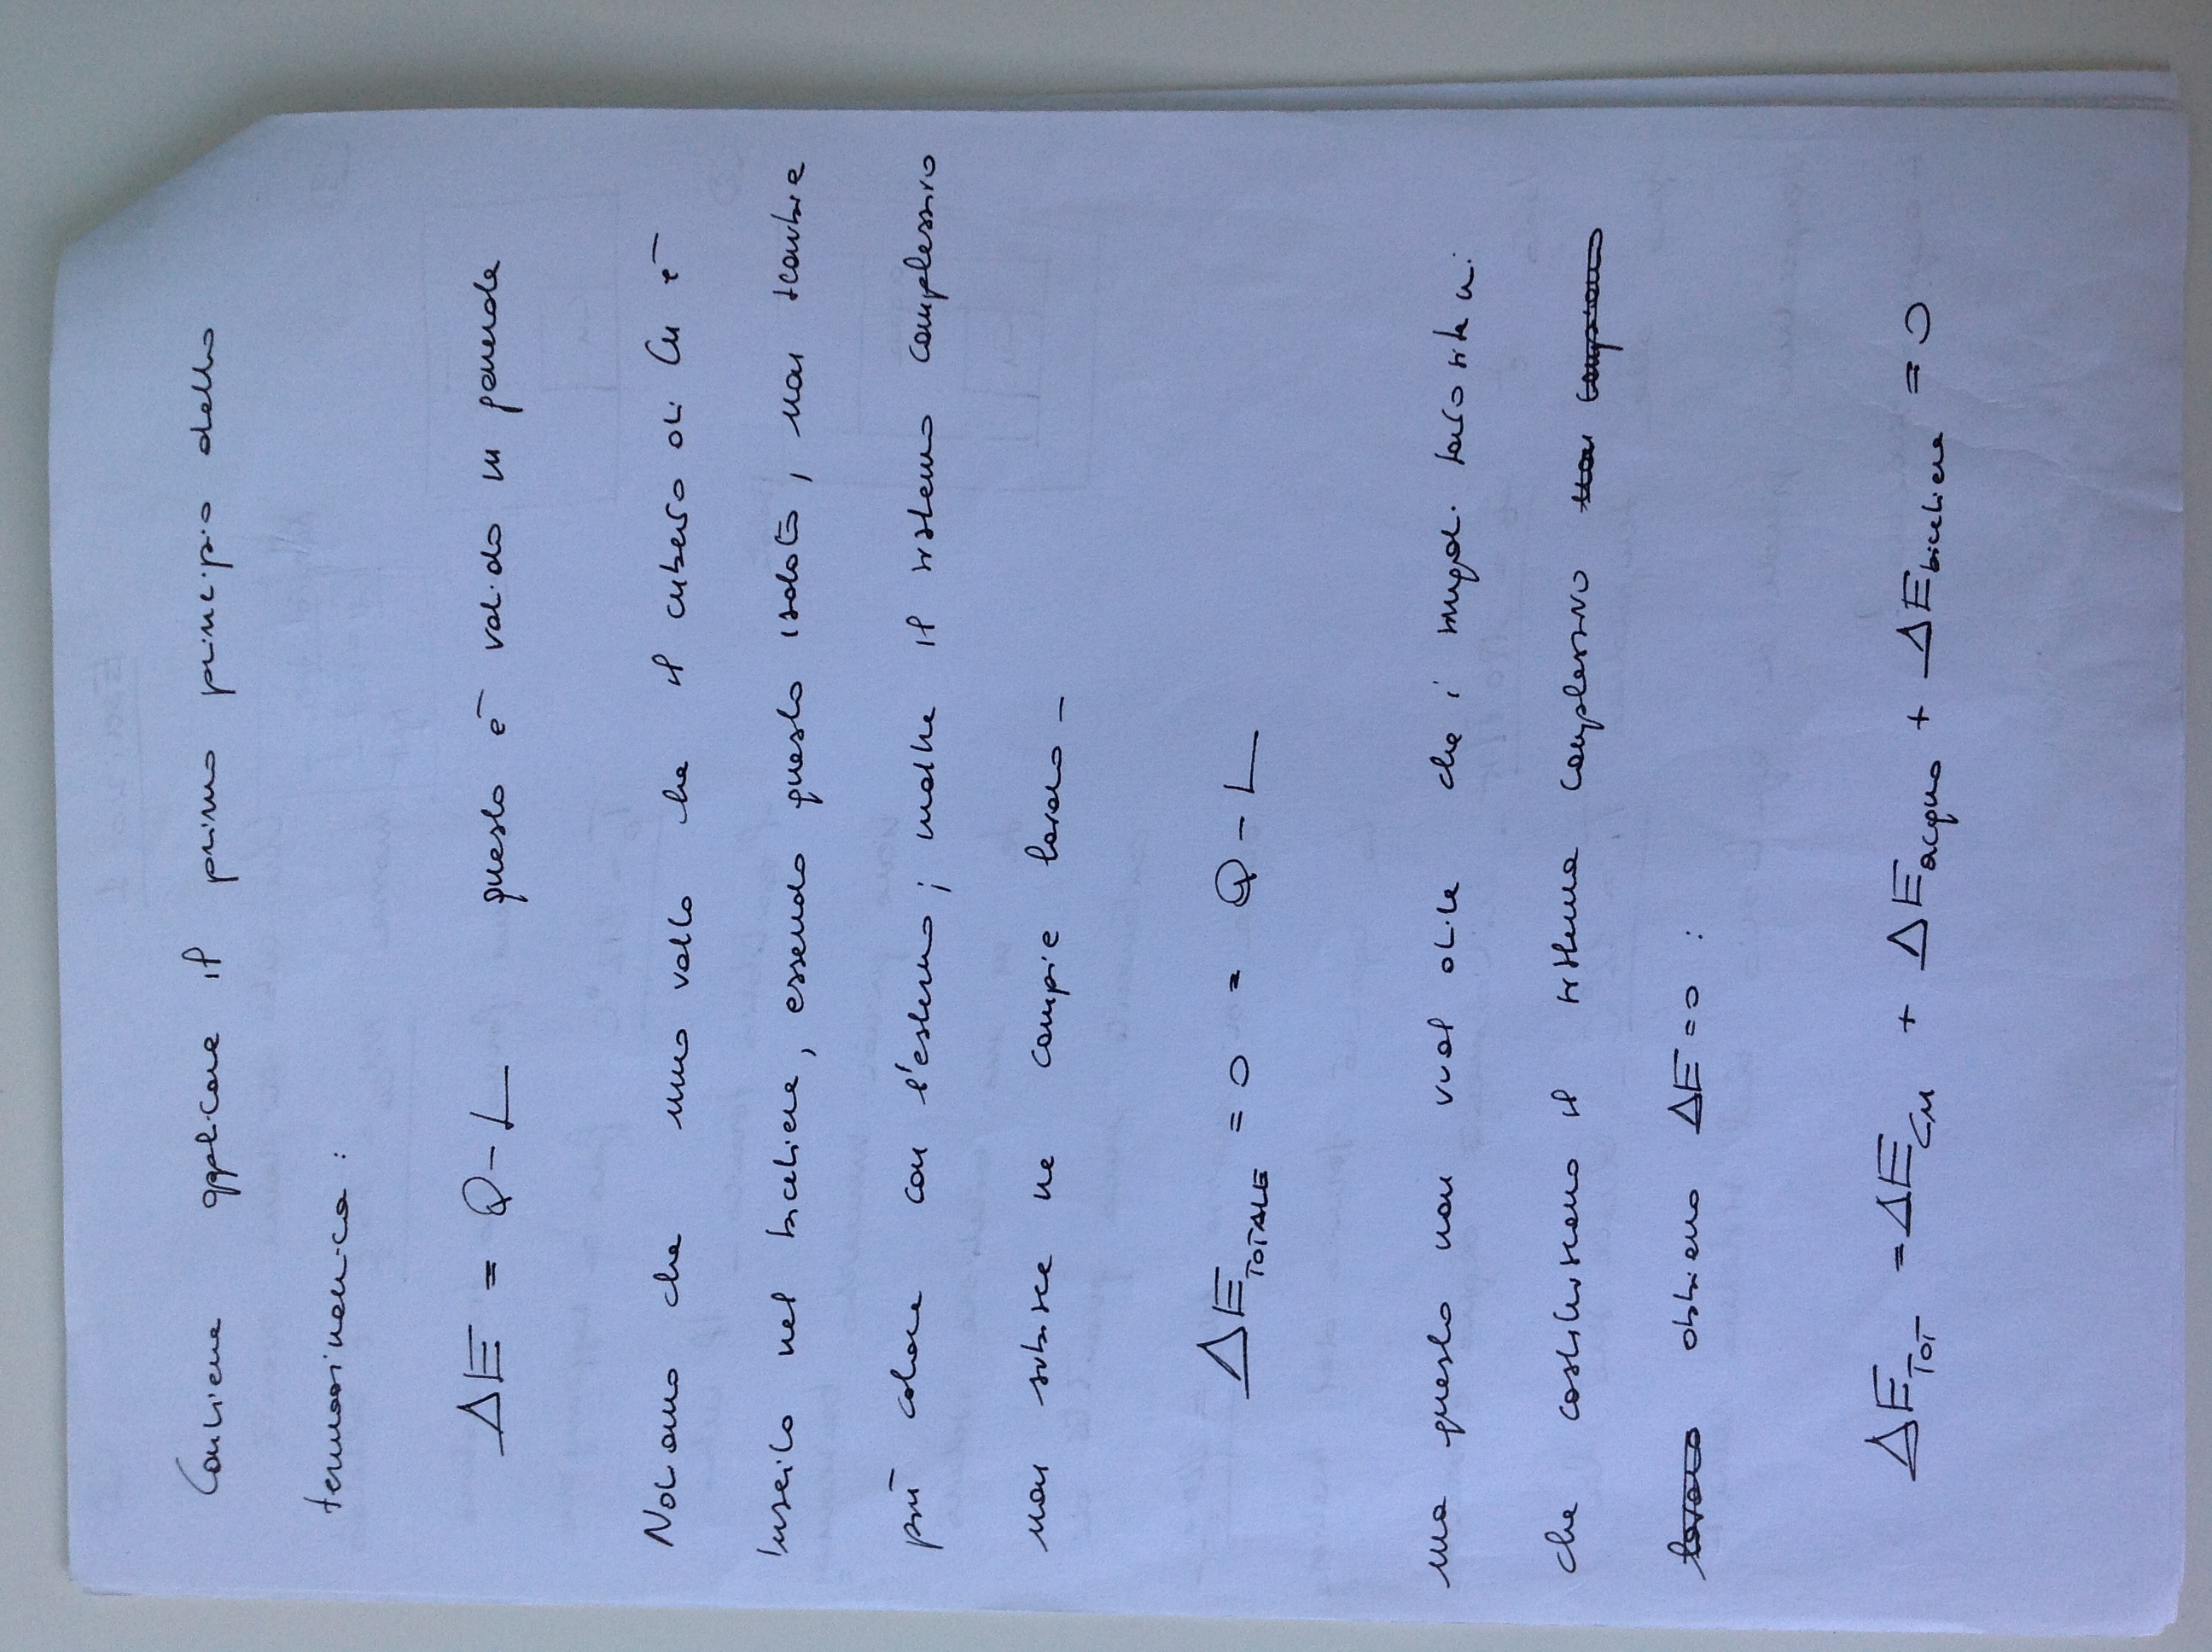 Conviene applicare il primo principio della
termodinamica :
ΔE = Q - L questo è valido in generale
Notiamo che una volta che il cubetto di Cu è
inserito nel bicchiere, essendo questo isolato, non scambia
più calore con l'esterno; inoltre il sistema complessivo
non subisce ne compie lavoro -
ΔE TOTALE = 0 = Q - L
ma questo non vuol dire che i singoli
che costituiscono il sistema complessivo non compiono
lavoro abbiano ΔE = 0 :
ΔE TOT = ΔE Cu + ΔE acqua + ΔE bicchiere = 0